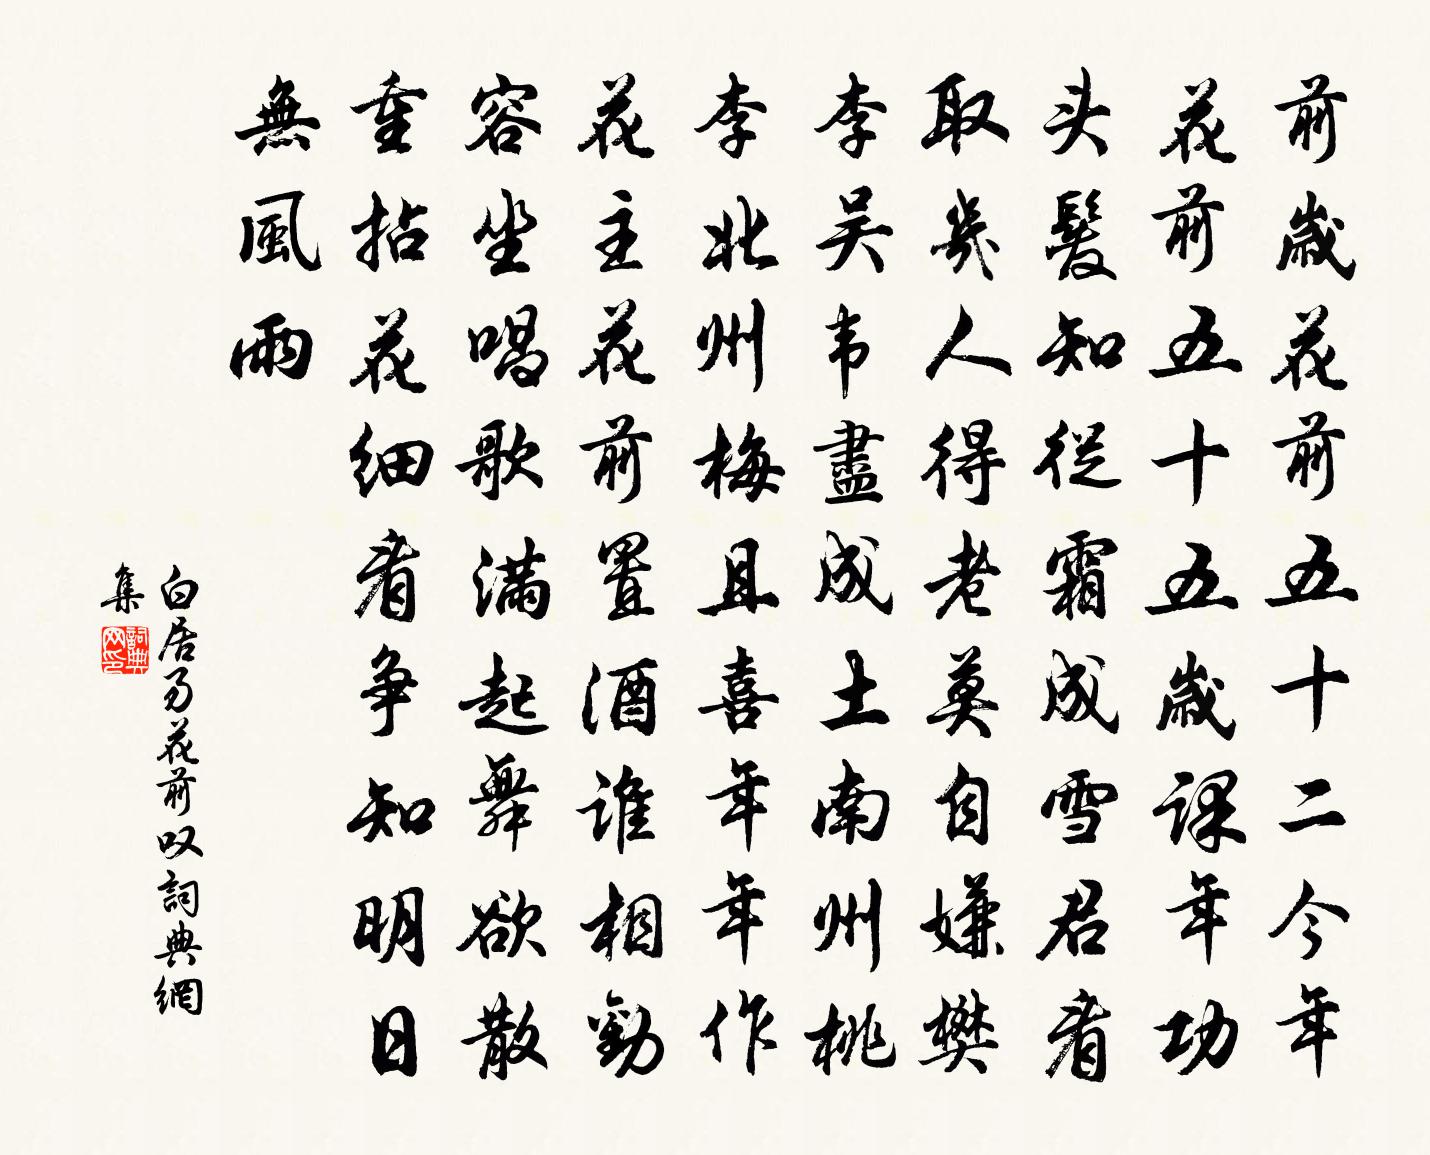 前歲花前五十二今年
花前五十五歲課年功
头髮知從霜成雪君看
取幾人得老莫自嫌樊
李吴韦盡成土南州桃
李北州梅且喜年年作
花主花前置酒谁相勸
容坐唱歌满起舞欲散
重拈花细看争知明日
無風雨
白居易花前叹詞典網
集
詞典网印